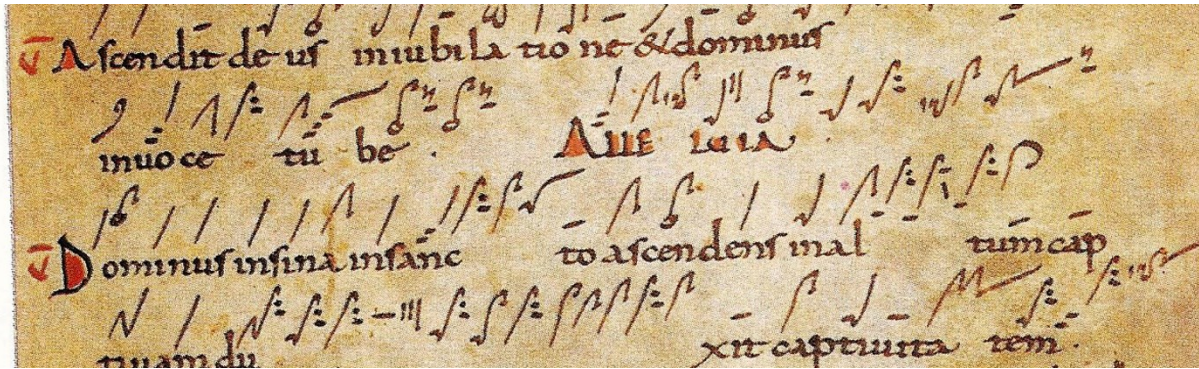 ℣ Ascendit de us in iubila tio ne & dominus
in uo ce tu be . Alle lu ia .
℣ Dominus insina insanc to ascendens inal tum cap
tiuam du xit captiuita tem .